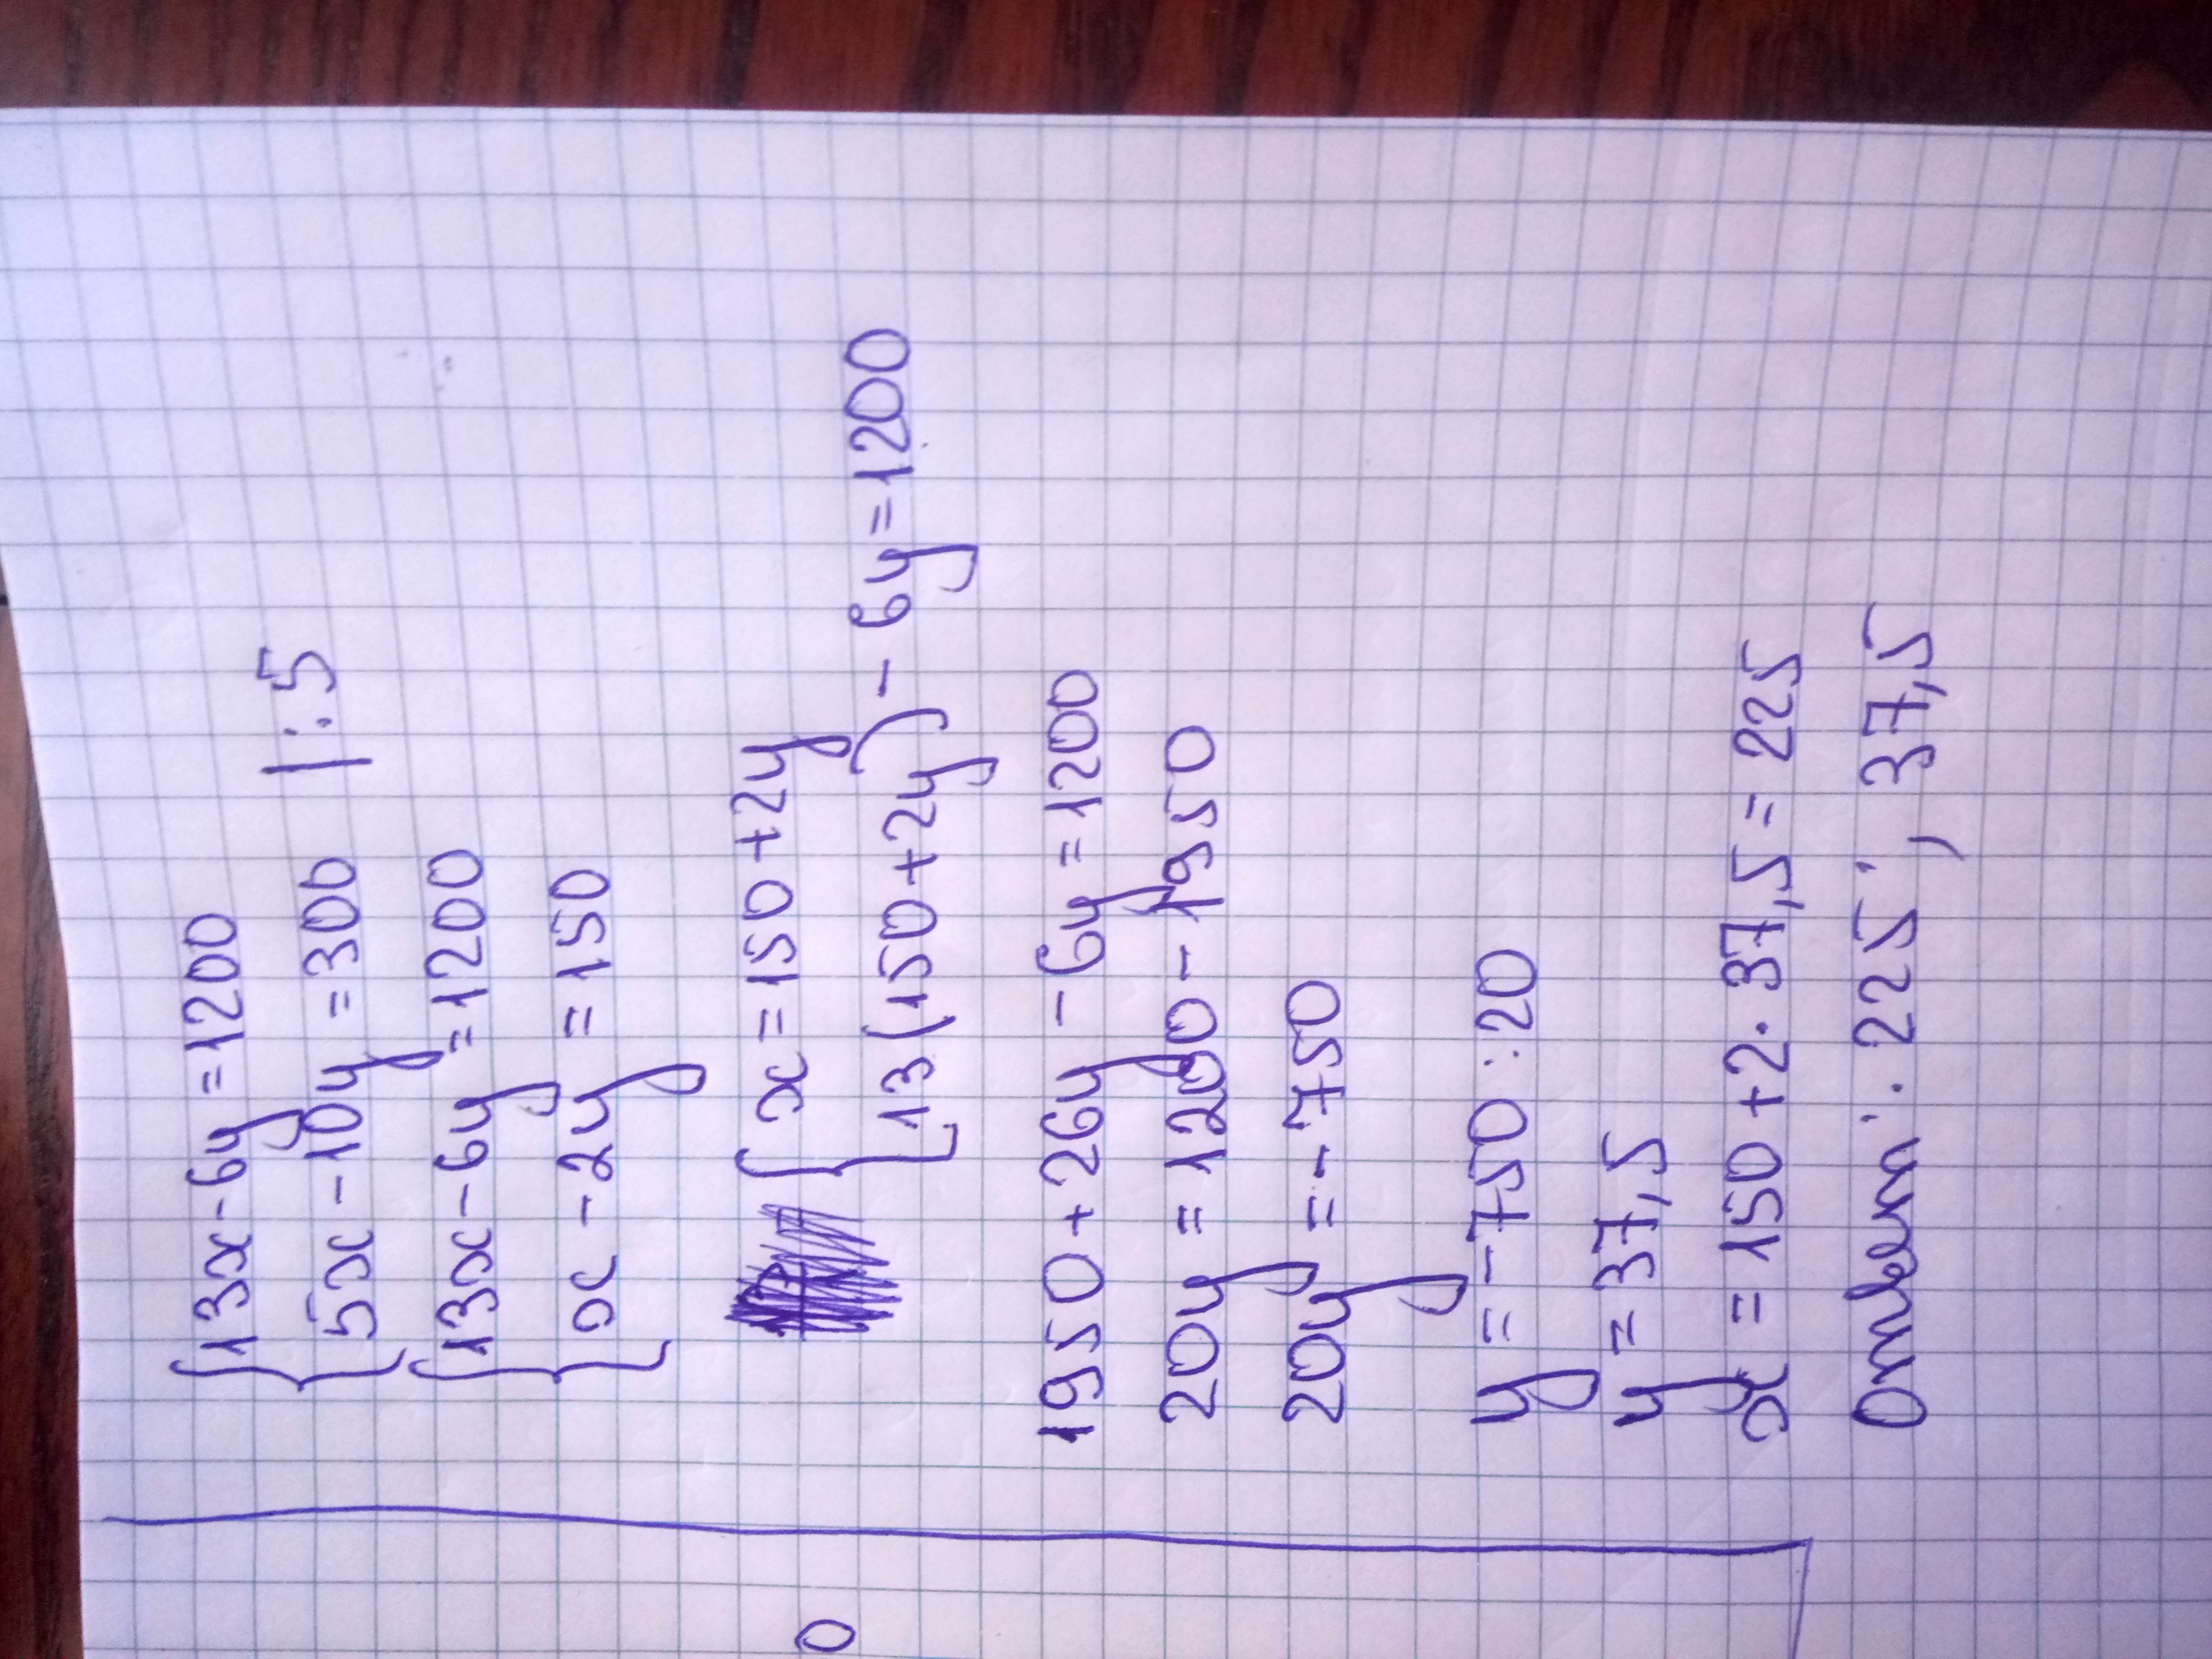 {13x-6y=1200
{5x-10y=300 |:5
{13x-6y=1200
{x-2y=150
{x=150+2y
{13(150+2y)-6y=1200
1950+26y-6y=1200
20y=1200-1950
20y=-750
y=-750:20
y=37,5
x=150+2·37,5=225
Ответ: 225; 37,5
0